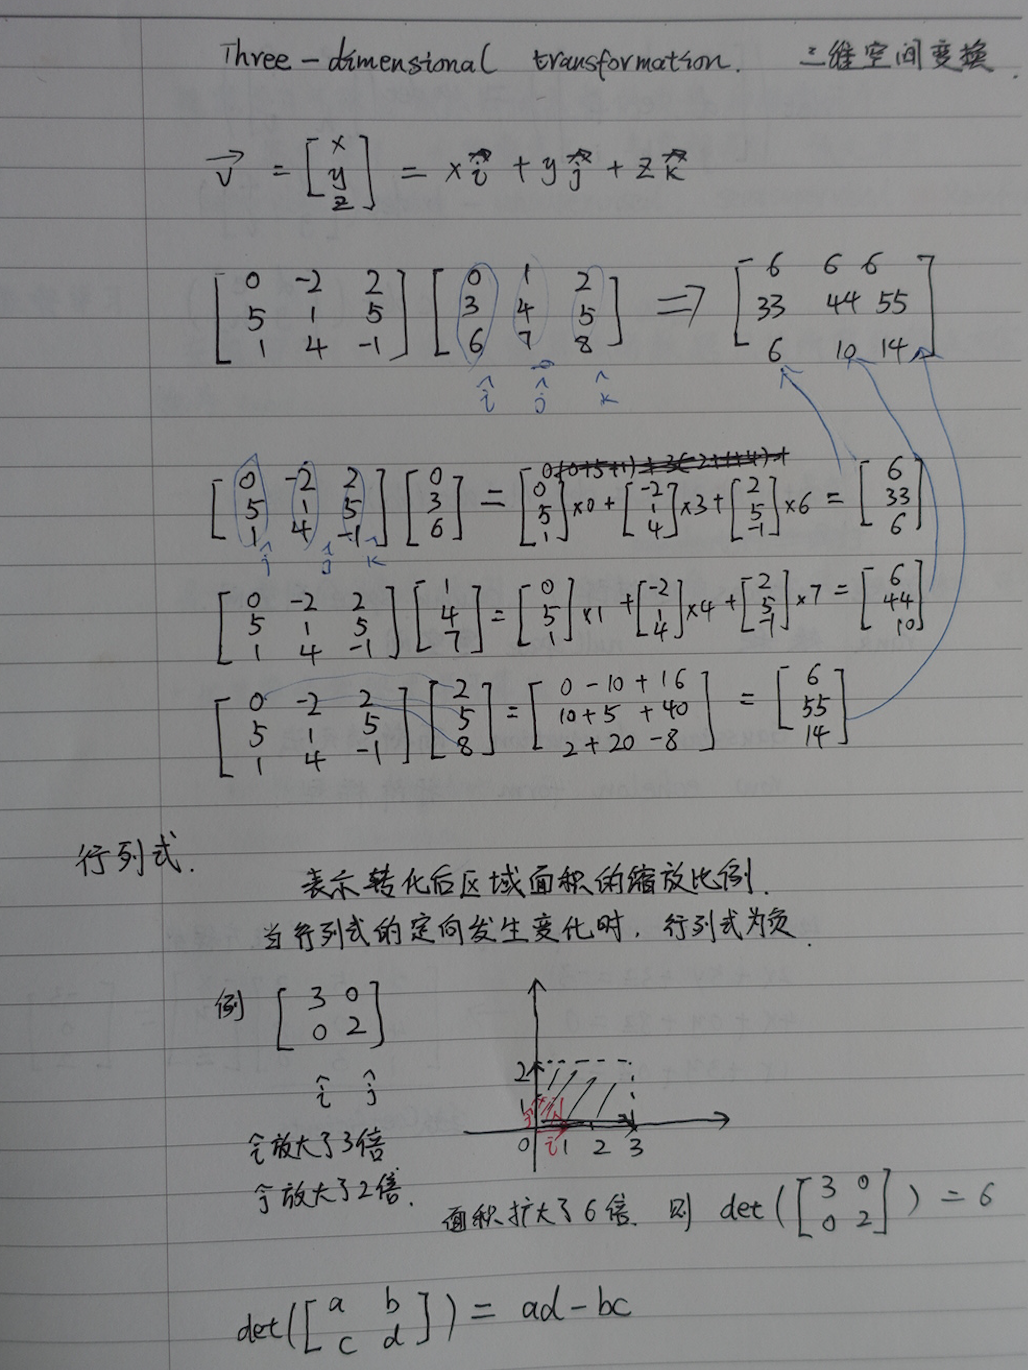 Three-dimensional transformation. 三维空间变换.
v⃗ = [x y z] = x i + y j + z k
[0 -2 2; 5 1 5; 1 4 -1] [0 1 2; 3 4 5; 6 7 8] => [6 6 6; 33 44 55; 6 10 14]
î ĵ k̂
[0 -2 2; 5 1 5; 1 4 -1] [0; 3; 6] = [0; 5; 1]×0 + [-2; 1; 4]×3 + [2; 5; -1]×6 = [6; 33; 6]
[0 -2 2; 5 1 5; 1 4 -1] [1; 4; 7] = [0; 5; 1]×1 + [-2; 1; 4]×4 + [2; 5; -1]×7 = [6; 44; 10]
[0 -2 2; 5 1 5; 1 4 -1] [2; 5; 8] = [0-10+16; 10+5+40; 2+20-8] = [6; 55; 14]
行列式.
表示转化后区域面积的缩放比例.
当行列式的定向发生变化时, 行列式为负.
例 [3 0; 0 2]
î ĵ
î放大了3倍
ĵ放大了2倍.
2
1
0 i 1 2 3
面积扩大了6倍. 则 det([3 0; 0 2]) = 6
det([a b; c d]) = ad-bc